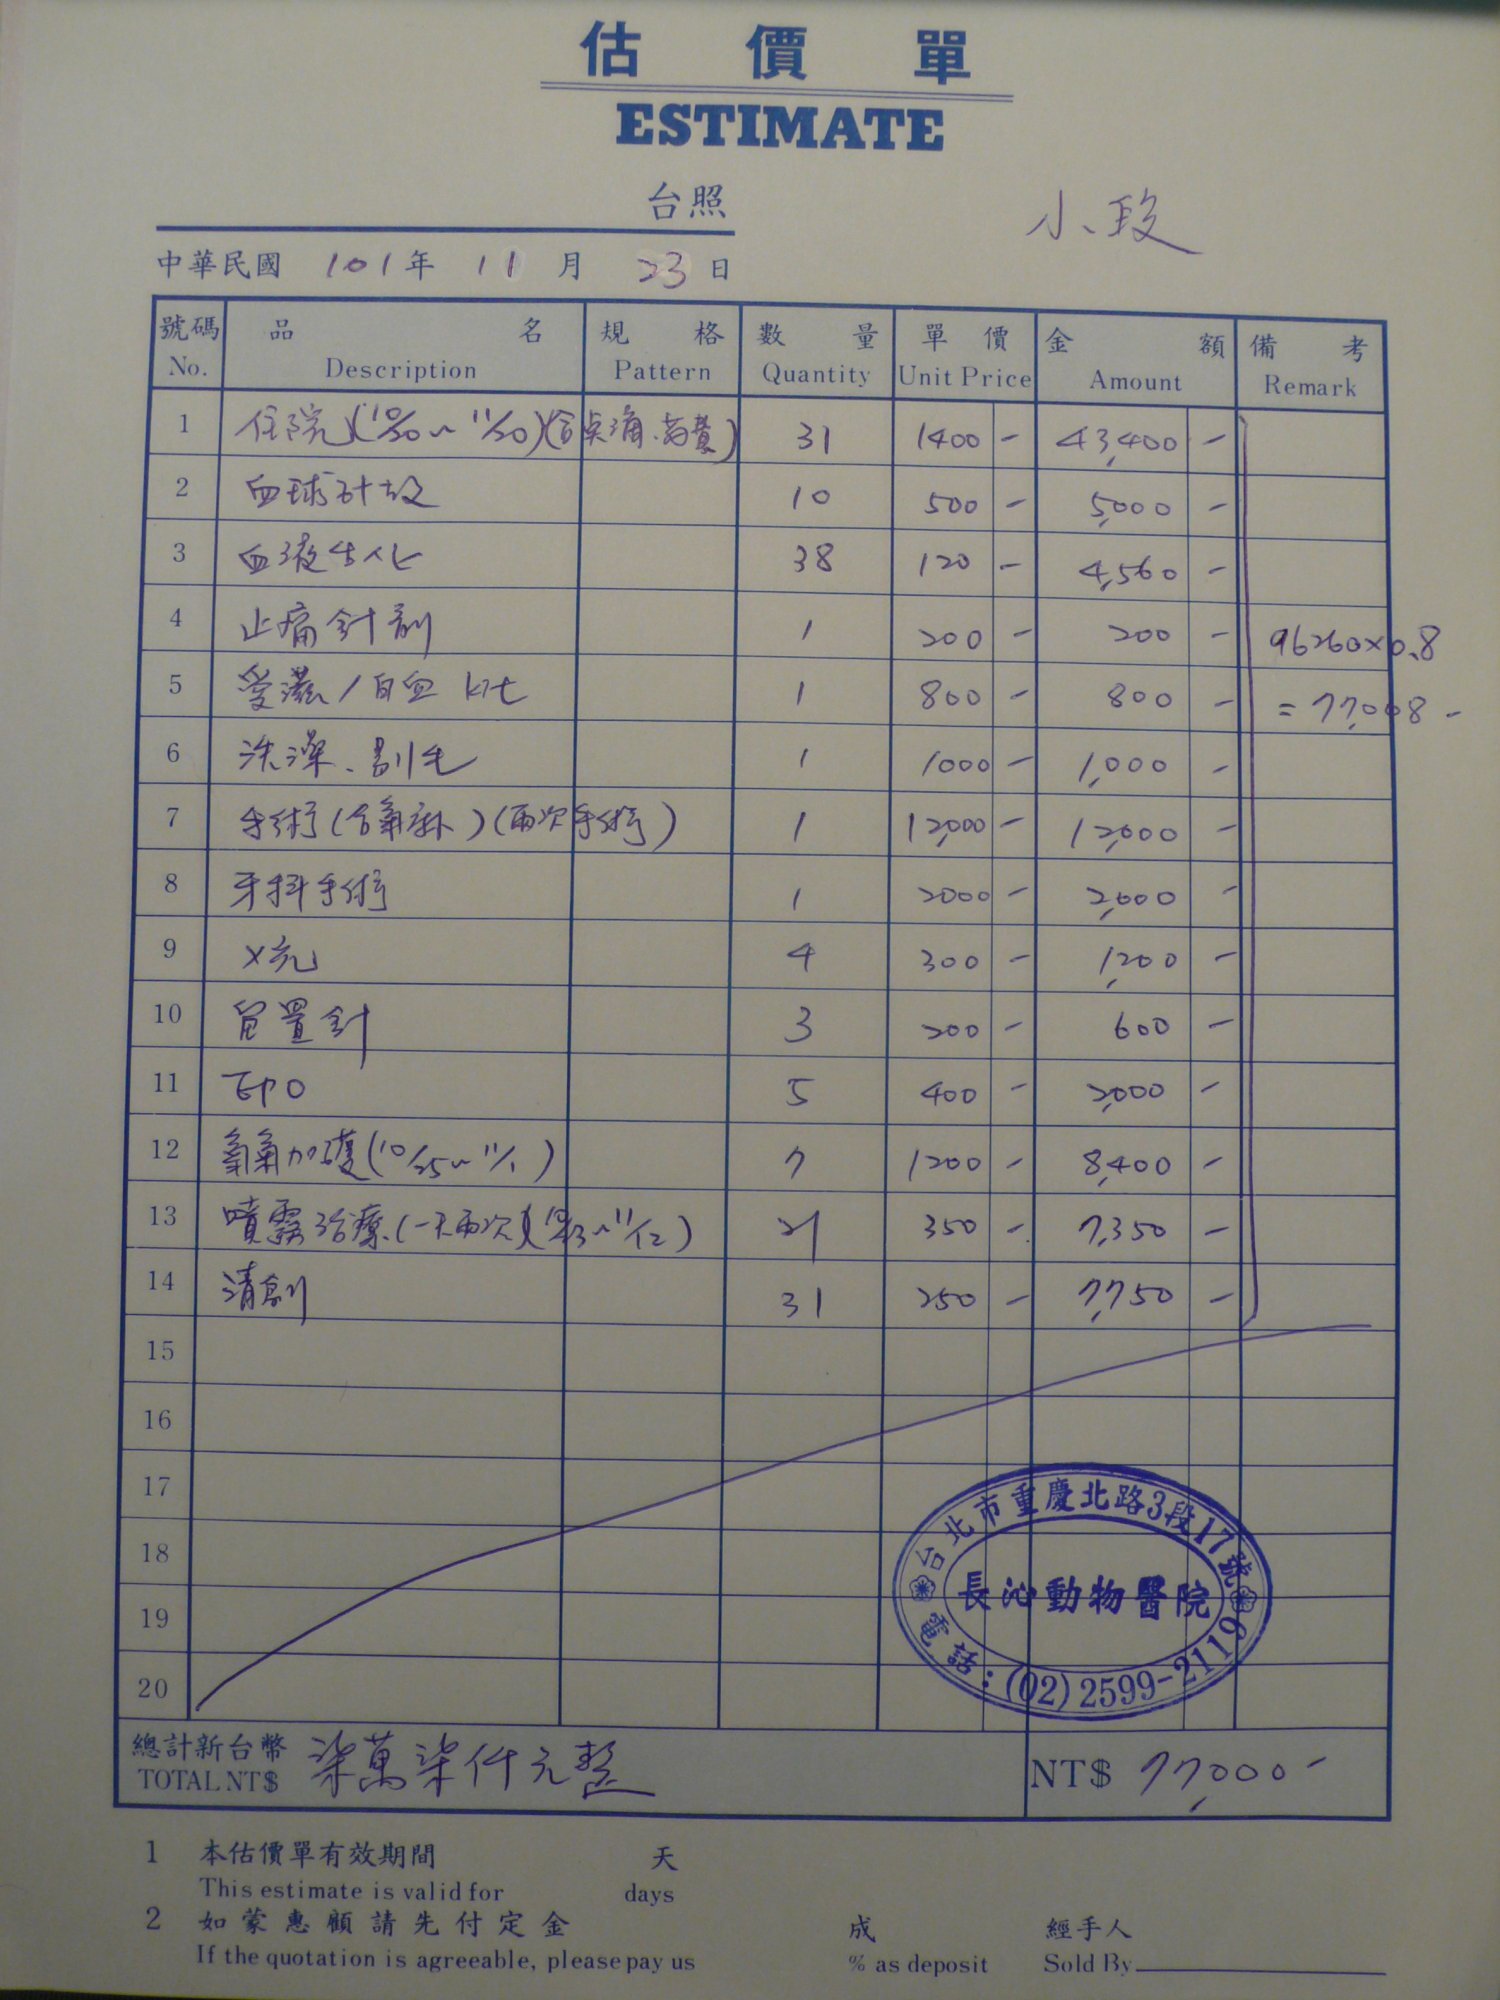 估價單
ESTIMATE
台照
小玟
中華民國 101年 11月 23日
號碼 品名 規格 數量 單價 金額 備考
No. Description Pattern Quantity Unit Price Amount Remark
1 住院(10/20~11/20)(含点滴、葯費) 31 1400 - 43,400 -
2 血球計数 10 500 - 5,000 -
3 血液生化 38 120 - 4,560 -
4 止痛針劑 1 200 - 200 - 96260×0.8
5 愛滋/白血 kit 1 800 - 800 - =77,008-
6 洗澡、剃毛 1 1000 - 1,000 -
7 手術(含氣麻)(兩次手術) 1 12,000 - 12,000 -
8 牙科手術 1 2000 - 2,000 -
9 X光 4 300 - 1,200 -
10 留置針 3 200 - 600 -
11 EPO 5 400 - 2,000 -
12 氧氣加護(10/25~11/1) 7 1200 - 8,400 -
13 噴霧治療(一天兩次)(~11/12) 21 350 - 7,350 -
14 清創 31 250 - 7,750 -
15
16
17
18
19
20
台北市重慶北路3段17號
長沁動物醫院
電話:(02)2599-2119
總計新台幣 柒萬柒仟元整
TOTAL NT$ NT$ 77,000-
1 本估價單有效期間 天
This estimate is valid for days
2 如蒙惠顧請先付定金 成 經手人
If the quotation is agreeable, please pay us % as deposit Sold By